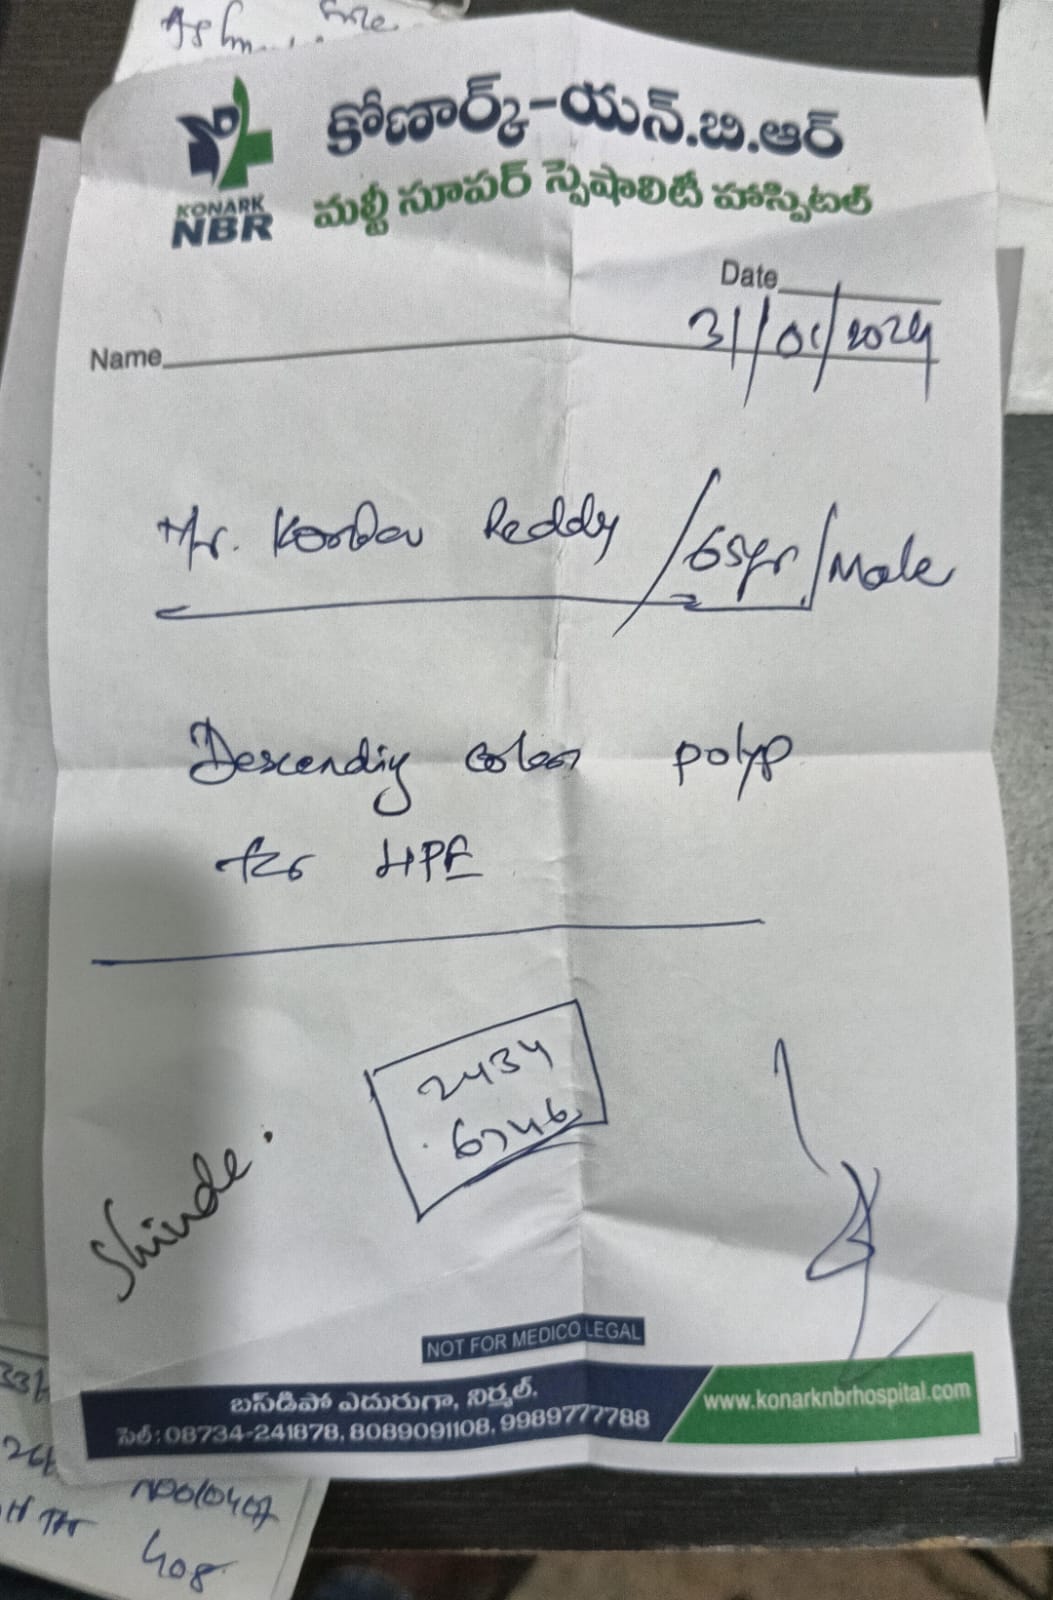 కోణార్క్-యన్.బి.ఆర్
మల్టీ సూపర్ స్పెషాలిటీ హాస్పిటల్
KONARK
NBR
Date
31/01/2024
Name
Mr. Reddy /65yr/Male
Descending colon polyp
for HPE
2434
6746
Shinde.
NOT FOR MEDICO LEGAL
బస్‌డిపో ఎదురుగా, నిర్మల్.
సెల్: 08734-241878, 8089091108, 9989777788
www.konarknbrhospital.com
408